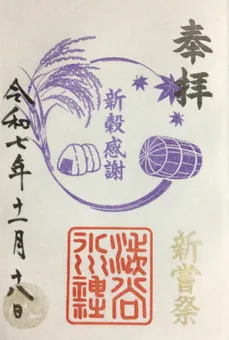 奉拝
新穀感謝
新嘗祭
澁谷
氷川神社
令和七年十一月十八日